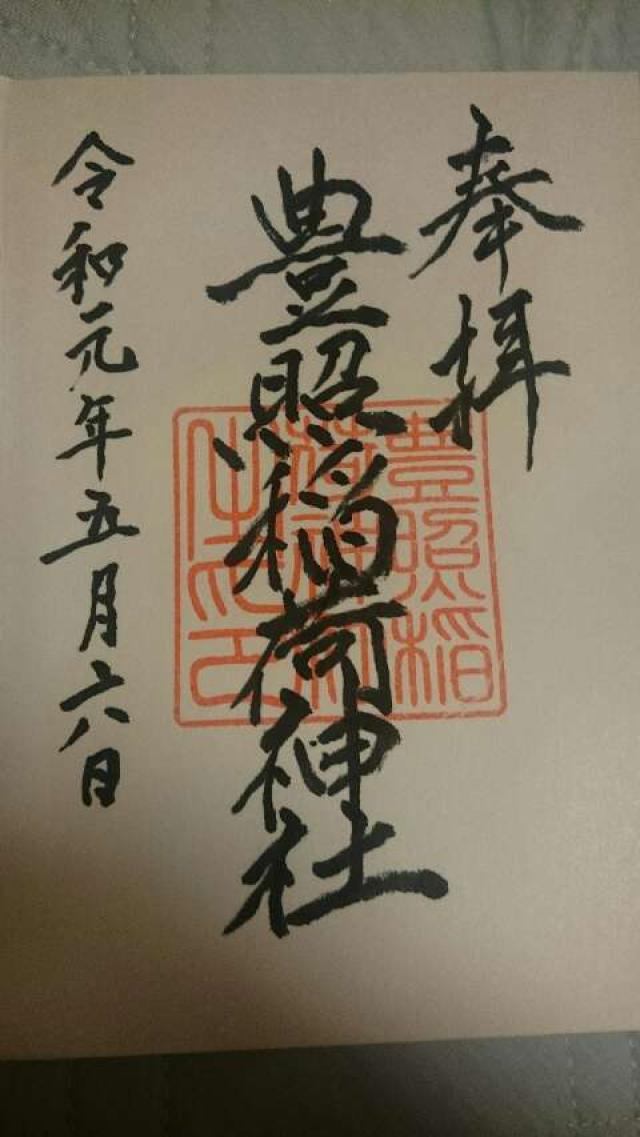 奉拝
豊照稲荷神社
令和元年五月六日
豊照稲
荷神社
之印